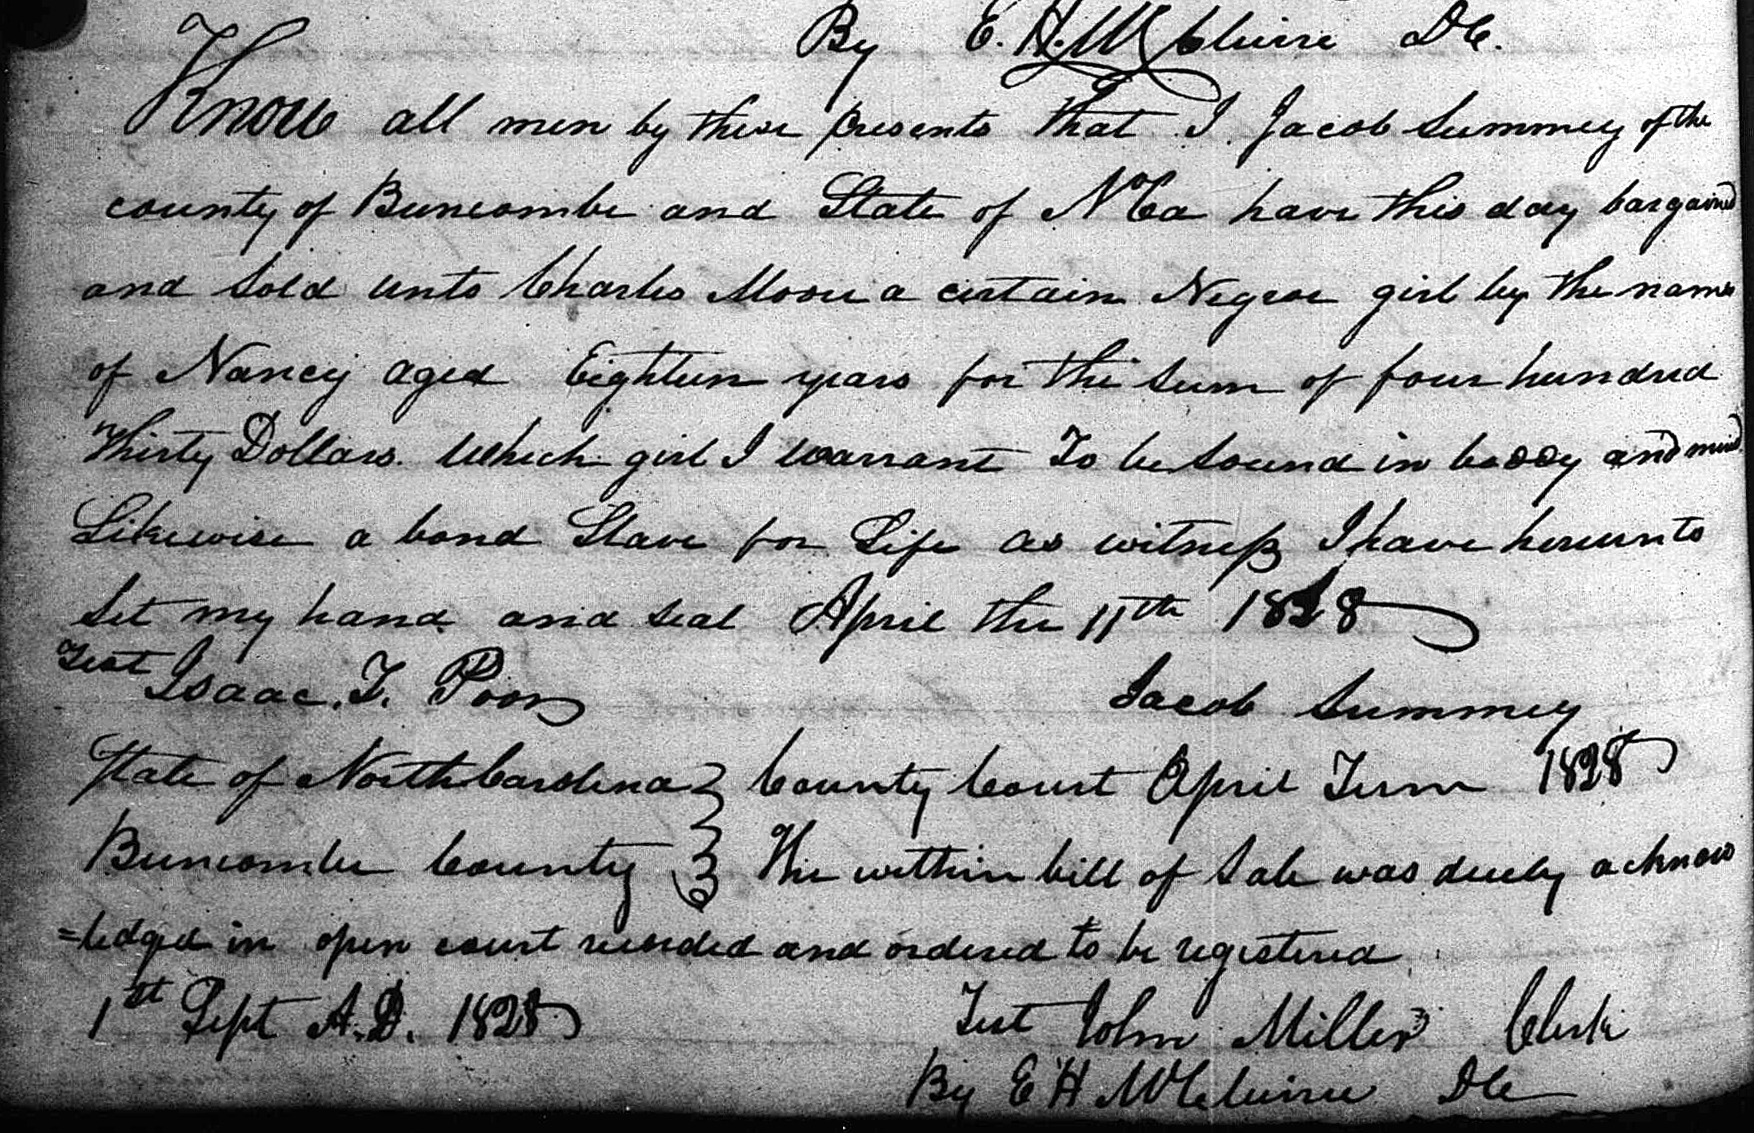 By E. H. McClure DC.
Know all men by these presents that I Jacob Summey of the
county of Buncombe and State of N Ca have this day bargained
and Sold unto Charles Moore a certain Negroe girl by the name
of Nancy aged Eighteen years for the sum of four hundred
Thirty Dollars. Which girl I warrant To be Sound in boddy and mind
Likewise a bond Slave for Life as witness I have hereunto
Set my hand and seal April the 11th 1828
Test Isaac. T. Poor Jacob Summey
State of North Carolina County Court April Term 1828
Buncombe County The within bill of Sale was duely acknow
=ledged in open court recorded and ordered to be registered
1st Sept A.D. 1828 Test John Miller Clerk
By E H McClure DC